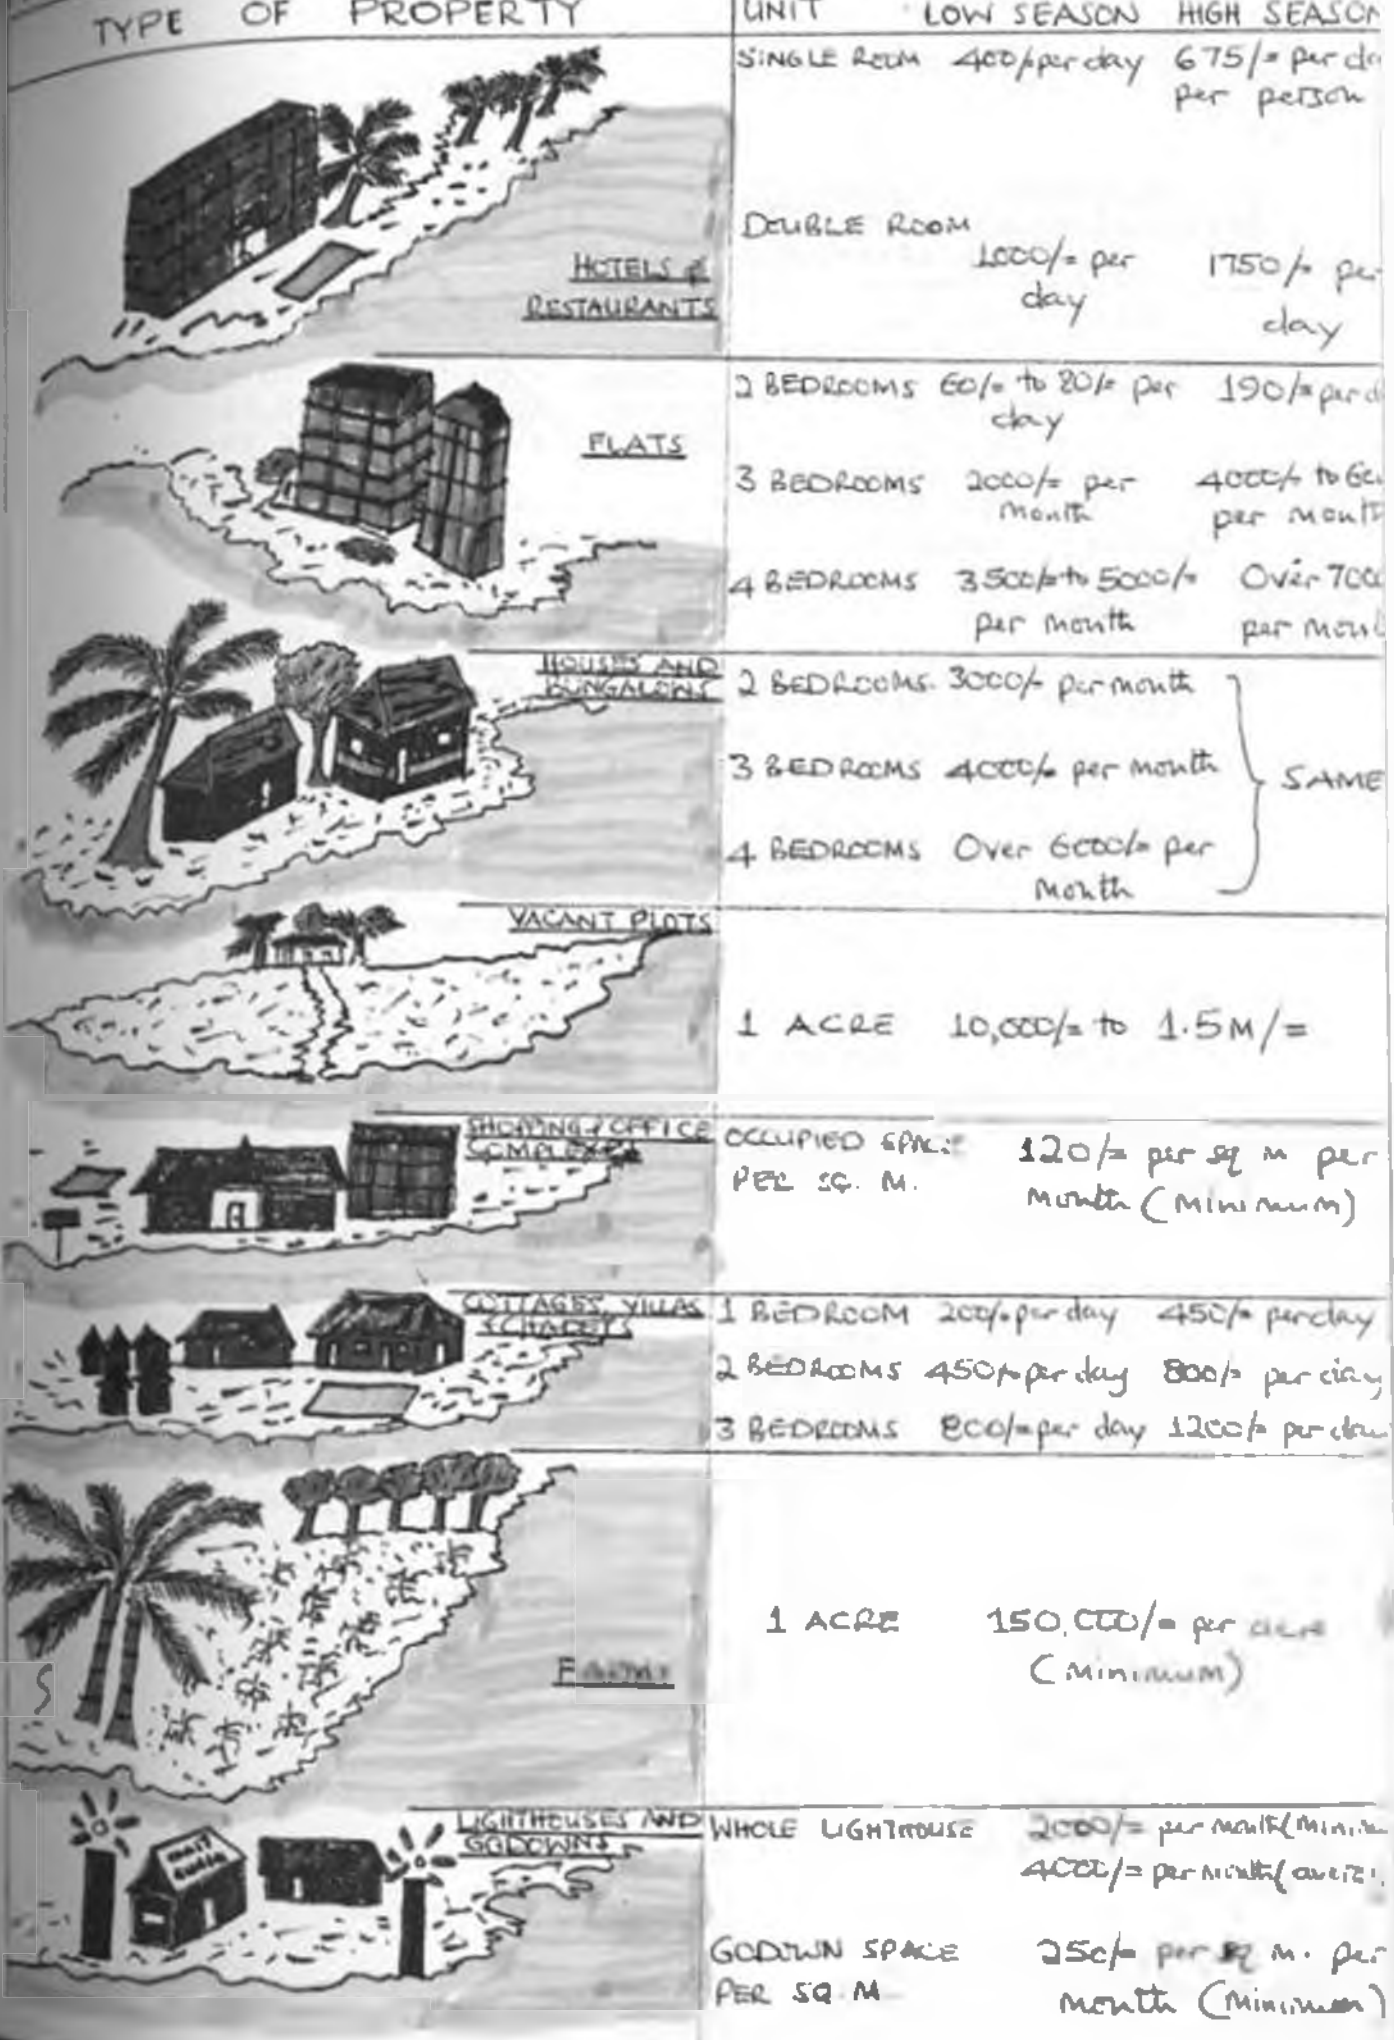 TYPE OF PROPERTY UNIT LOW SEASON HIGH SEASON
SINGLE ROOM 400/= per day 675/= per da
per person
DOUBLE ROOM
1000/= per 1750/= per
day day
HOTELS &
RESTAURANTS
2 BEDROOMS 60/= to 80/= per 190/= per d
day
FLATS
3 BEDROOMS 2000/= per 4000/= to 60
month per month
4 BEDROOMS 3500/= to 5000/= Over 7000
per month per mont
HOUSES AND
BUNGALOWS
2 BEDROOMS. 3000/= per month
3 BEDROOMS 4000/= per month SAME
4 BEDROOMS Over 6000/= per
month
VACANT PLOTS
1 ACRE 10,000/= to 1.5M/=
SHOPPING & OFFICE
COMPLEXES
OCCUPIED SPACE 120/= per sq m per
PER SQ. M. month (minimum)
COTTAGES, VILLAS
1 BEDROOM 200/= per day 450/= per day
2 BEDROOMS 450/= per day 800/= per day
3 BEDROOMS 800/= per day 1200/= per day
1 ACRE 150,000/= per acre
(minimum)
FARMS
LIGHTHOUSES AND
GODOWNS
WHOLE LIGHTHOUSE 2000/= per month (minim
4000/= per month (
GODOWN SPACE 250/= per sq m. per
PER SQ M month (minimum)